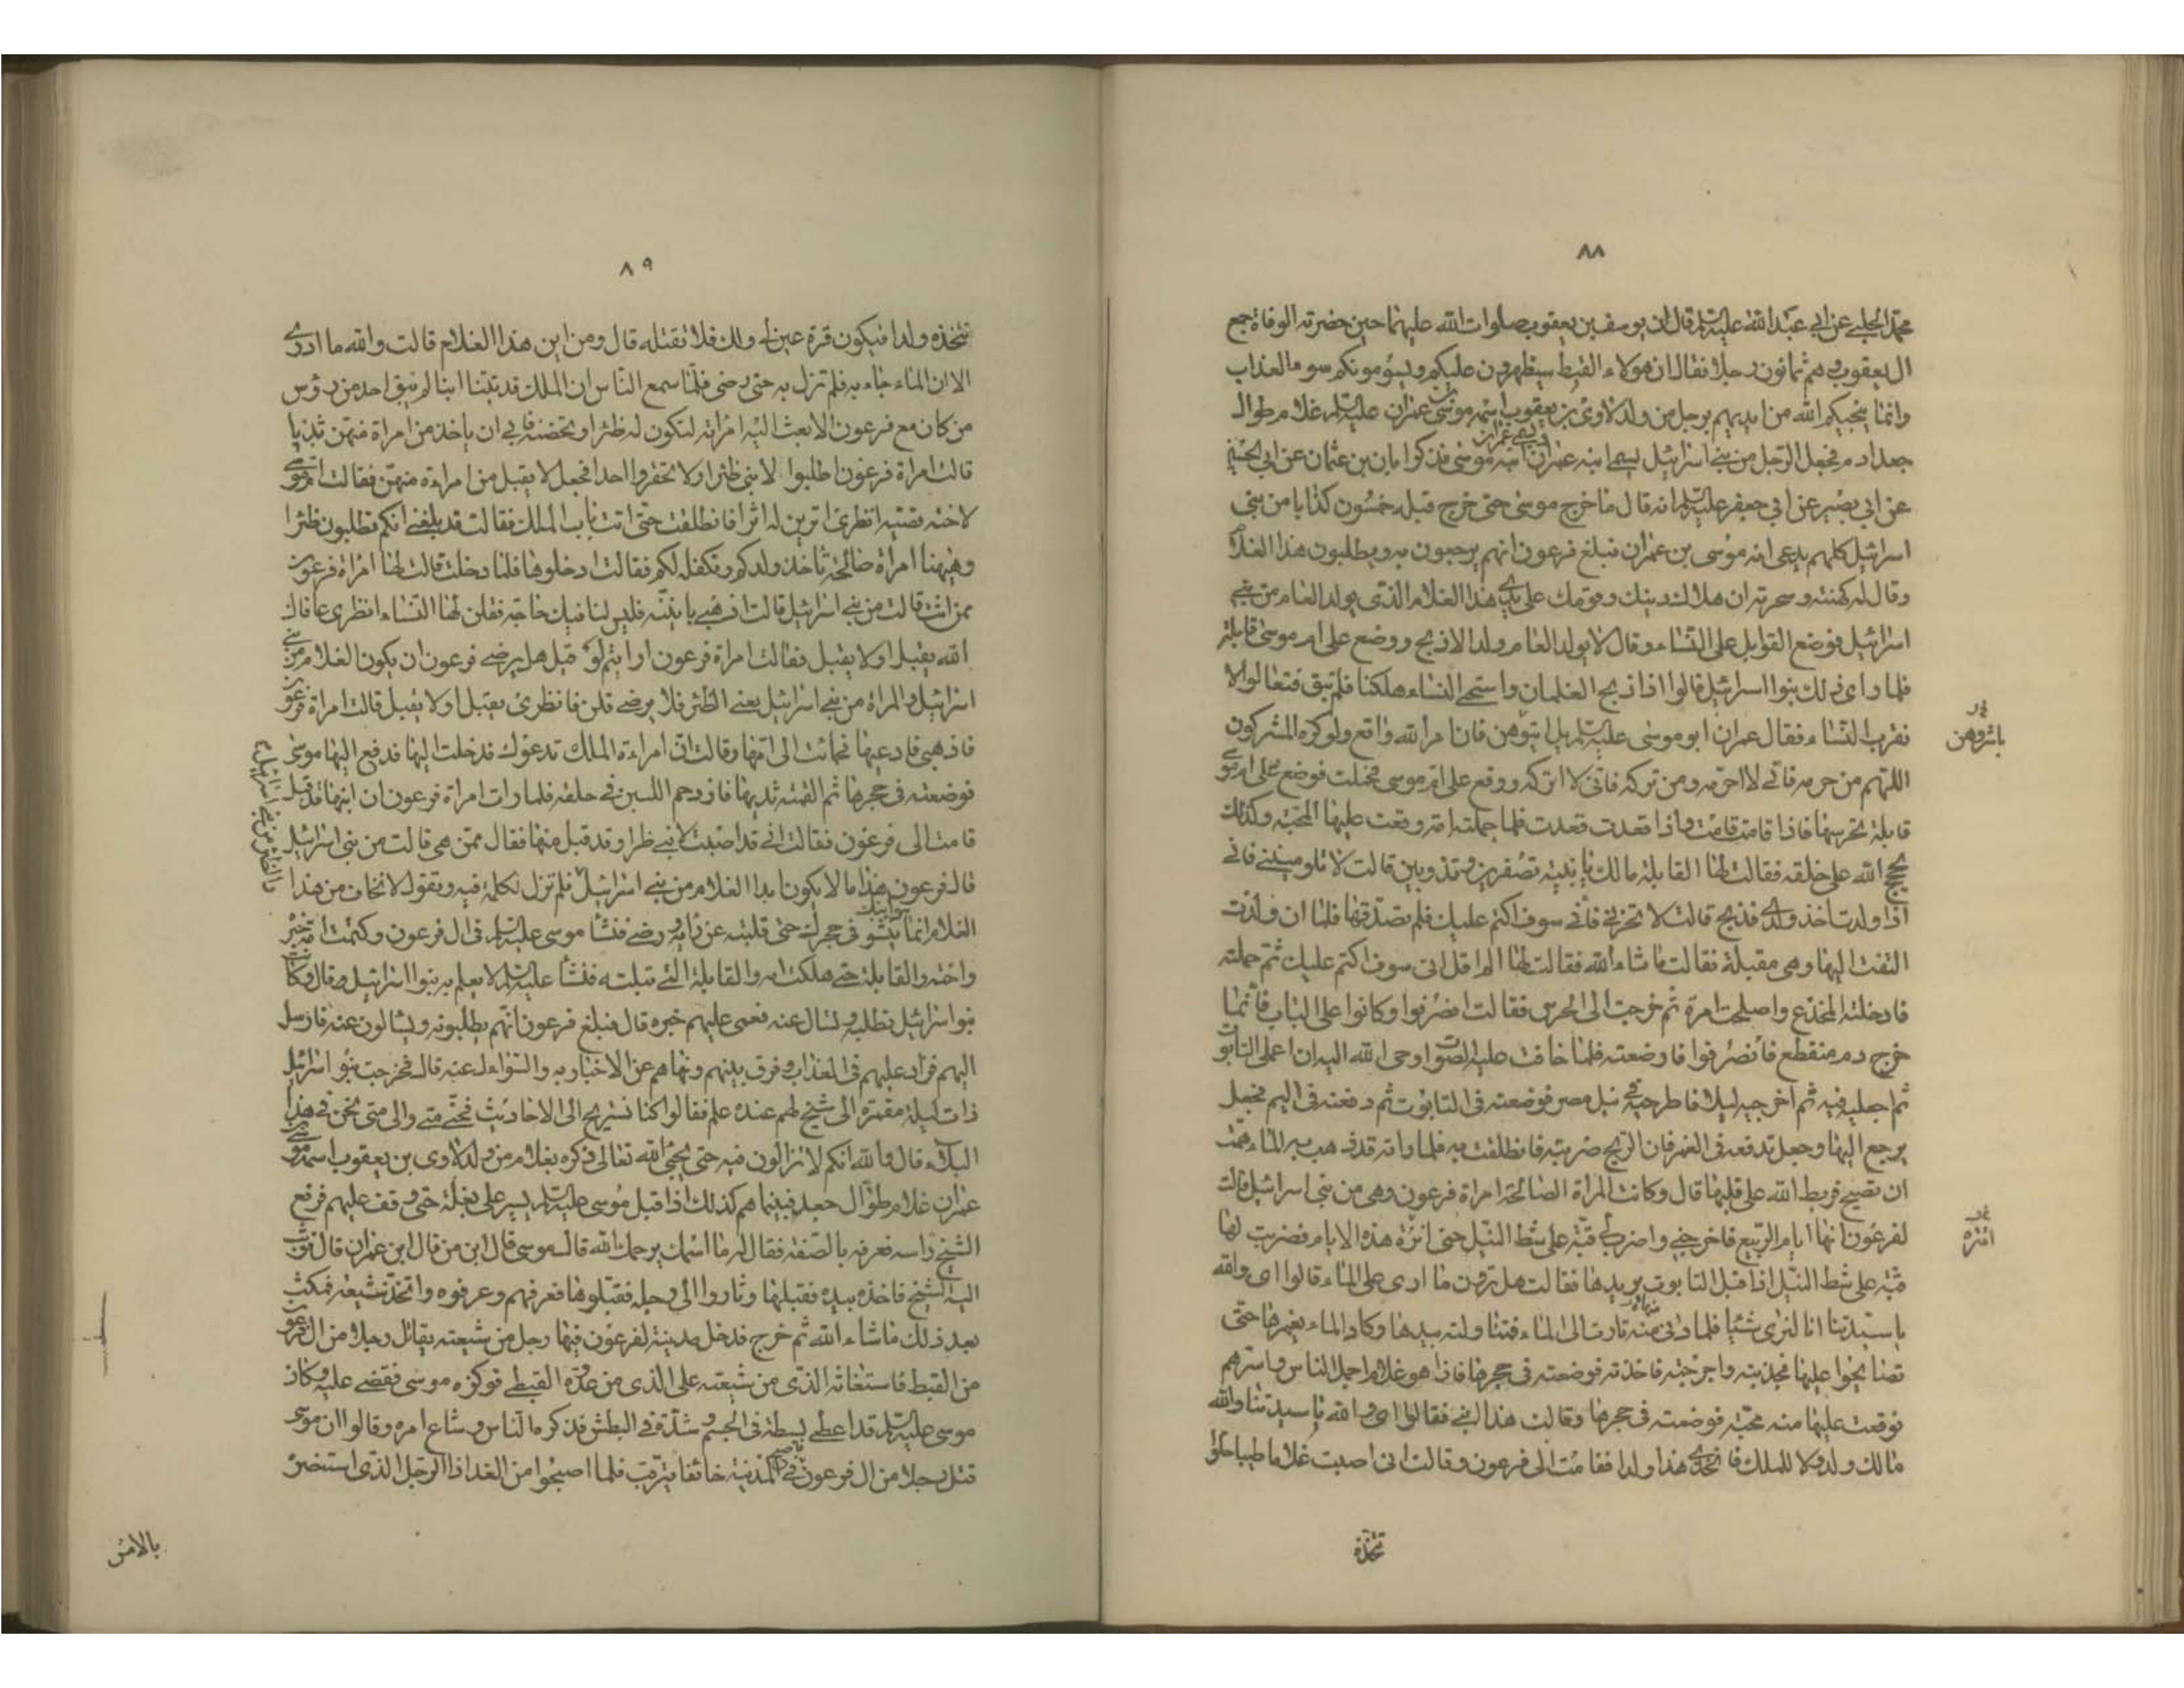 ٨٨
محمد الحلبي عن ابي عبد الله عليه السلام قال ان يوسف بن يعقوب صلوات الله عليهما حين حضرته الوفاة جمع
ال يعقوب وهم ثمانون رجلا فقال ان هولاء القبط سيظهرون عليكم ويسومونكم سوء العذاب
وانما ينجيكم الله من ايديهم برجل من ولد لاوى بن يعقوب اسمه موسى بن عمران عليه السلام غلام طوال
جعد ادم فجعل الرجل من بني اسرائيل يسمي ابنه عمران ويسمي عمران ابنه موسى فذكر ابان بن عثمان عن ابي الحسين
عن ابي بصير عن ابي جعفر عليه السلام انه قال ما خرج موسى حتى خرج قبله خمسون كذابا من بني
اسرائيل كلهم يدعى انه موسى بن عمران فبلغ فرعون انهم يرجعون به ويطلبون هذا الغلام
وقال له كهنته وسحرته ان هلاك دينك وقومك على يدي هذا الغلام الذى يولد العام من بني
اسرائيل فوضع القوابل على النساء وقال لا يولد العام ولد الا ذبح ووضع على ام موسى قابلة
فلما راى ذلك بنوا اسرائيل قالوا اذا ذبح الغلمان واستحى النساء هلكنا فلم نبق فتعالوا لا
نقرب النساء فقال عمران ابو موسى عليه السلام بل ايتوهن فان امر الله واقع ولو كره المشركون
بل باشروهن
اللهم من حرمه فاني لا احرمه ومن تركه فاني لا اتركه ووقع على ام موسى فحملت فوضع على ام موسى
قابلة تحرسها فاذا قامت قامت واذا قعدت قعدت فلما حملته امه وقعت عليها المحبة وكذلك
حجج الله على خلقه فقالت لها القابلة مالك يا بنية تصفرين وتذوبين قالت لا تلوميني فاني
اذا ولدت اخذ ولدي فذبح قالت لا تحزني فاني سوف اكتم عليك فلم تصدقها فلما ان ولدت
التفت اليها وهي مقبلة فقالت ما شاء الله فقالت لها الم اقل اني سوف اكتم عليك ثم حملته
فادخلته المخدع واصلحت امره ثم خرجت الى الحرس فقالت انصرفوا وكانوا على الباب فانما
خرج دم منقطع فانصرفوا فارضعته فلما خافت عليه الصوت اوحى الله اليه ان اعملى التابوت
ثم اجعليه فيه ثم اخرجيه ليلا فاطرحيه في نيل مصر فوضعته فى التابوت ثم دفعته فى اليم فجعل
يرجع اليها وجعل تدفعه فى الغمر فان الريح ضربته فانطلقت به فلما راته قد ذهب به الماء همت
ان تصيح فربط الله على قلبها قال وكانت المراة الصالحة امراة فرعون وهى من بني اسرائيل قالت
لفرعون انها ايام الربيع فاخرجني واضرب لي قبة على شط النيل حتى انزه هذه الايام فضربت لها
قبة على شط النيل اذا قبل التابوت يريدها فقالت هل ترون ما ارى على الماء قالوا اى والله
يا سيدتنا انا لنرى شيئا فلما دنى منها ثارت الى الماء فتناولته بيدها وكاد الماء يغمرها حتى
تصايحوا عليها فجذبته واخرجته فاخذته فوضعته فى حجرها فاذا هو غلام اجمل الناس واسرهم
فوقعت عليها منه محبة فوضعته فى حجرها وقالت هذا ابني فقالوا اى والله يا سيدتنا والله
مالك ولد ولا للملك فاتخذي هذا ولدا فقامت الى فرعون وقالت انى اصبت غلاما طيبا حلوا
تتخذه
٨٩
نتخذه ولدا فيكون قرة عين لي ولك فلا تقتله قال ومن اين هذا الغلام قالت والله ما ادرى
الا ان الماء جاء به فلم تزل به حتى رضى فلما سمع الناس ان الملك قد تبنا ابنا لم يبق احد من رؤس
من كان مع فرعون الا بعث اليه امراته لتكون له ظئرا وتحضنه فابي ان ياخذ من امراة منهن ثديا
قالت امراة فرعون اطلبوا لابني ظئرا ولا تحقروا احدا فجعل لا يقبل من امراة منهن فقالت ام موسى
لاخته قصيه انظرى اترين له اثرا فانطلقت حتى اتت باب الملك فقالت قد بلغني انكم تطلبون ظئرا
وهيهنا امراة صالحة تاخذ ولدكم وتكفله لكم فقالت ادخلوها فلما دخلت قالت لها امراة فرعون
ممن انت قالت من بني اسرائيل قالت اذهبي يا بنية فليس لنا فيك حاجة فقلن لها النساء انظرى عافاك
الله يقبل او لا يقبل فقالت امراة فرعون ارايتم لو قبل هل يرضى فرعون ان يكون الغلام من بني
اسرائيل والمراة من بني اسرائيل يعني الظئر فلا يرضى قلن فانظرى يقبل او لا يقبل قالت امراة فرعون
فاذهبي فادعيها فجائت الى امها وقالت ان امراءة الملك تدعوك فدخلت اليها فدفع اليها موسى
فوضعته فى حجرها ثم القمته ثديها فازدحم اللبن في حلقه فلما رات امراة فرعون ان ابنها قد قبل
قامت الى فرعون فقالت اني قد اصبت لابني ظئرا وقد قبل منها فقال ممن هى قالت من بني اسرائيل
قال فرعون هذا ما لا يكون ابدا الغلام من بني اسرائيل فلم تزل تكلمه فيه وتقول لا تخاف من هذا
والظئر من بني اسرائيل
الغلام انما هو ابنك ينشو فى حجرك حتى قلبته عن رايه ورضى فنشأ موسى عليه السلام فى ال فرعون وكتمت امه خبره
واخته والقابلة حتى هلكت امه والقابلة التي قبلته فنشأ عليه السلام لا يعلم به بنوا اسرائيل قال وكانت
بنو اسرائيل تطلبه وتسال عنه فعمى عليهم خبره قال فبلغ فرعون انهم يطلبونه ويسالون عنه فارسل
اليهم فزاد عليهم فى العذاب وفرق بينهم ونهاهم عن الاخبار به والسؤال عنه قال فخرجت بنو اسرائيل
ذات ليلة مقمرة الى شيخ لهم عنده علم فقالوا كنا نستريح الى الاحاديث فحتى متى والى متى نحن في هذا
البلاء قال والله انكم لا تزالون فيه حتى يجيئ الله تعالى ذكره بغلام من ولد لاوى بن يعقوب اسمه موسى بن
عمران غلام طوال جعد فبينما هم كذلك اذ اقبل موسى عليه السلام يسير على بغلة حتى وقف عليهم فرفع
الشيخ راسه فعرفه بالصفة فقال له ما اسمك يرحمك الله قال موسى قال ابن من قال ابن عمران قال فوثب
اليه الشيخ فاخذ بيده فقبلها وثاروا الى رجله فقبلوها فعرفهم وعرفوه واتخذ شيعة فمكث
بعد ذلك ما شاء الله ثم خرج فدخل مدينة لفرعون فيها رجل من شيعته يقاتل رجلا من ال فرعون
من القبط فاستغاثه الذى من شيعته على الذى من عدوه القبطي فوكزه موسى فقضى عليه وكان
موسى عليه السلام قد اعطى بسطة فى الجسم وشدة في البطش فذكره الناس وشاع امره وقالوا ان موسى
قتل رجلا من ال فرعون فاصبح في المدينة خائفا يترقب فلما اصبحوا من الغد اذا الرجل الذى استنصره
بالامس